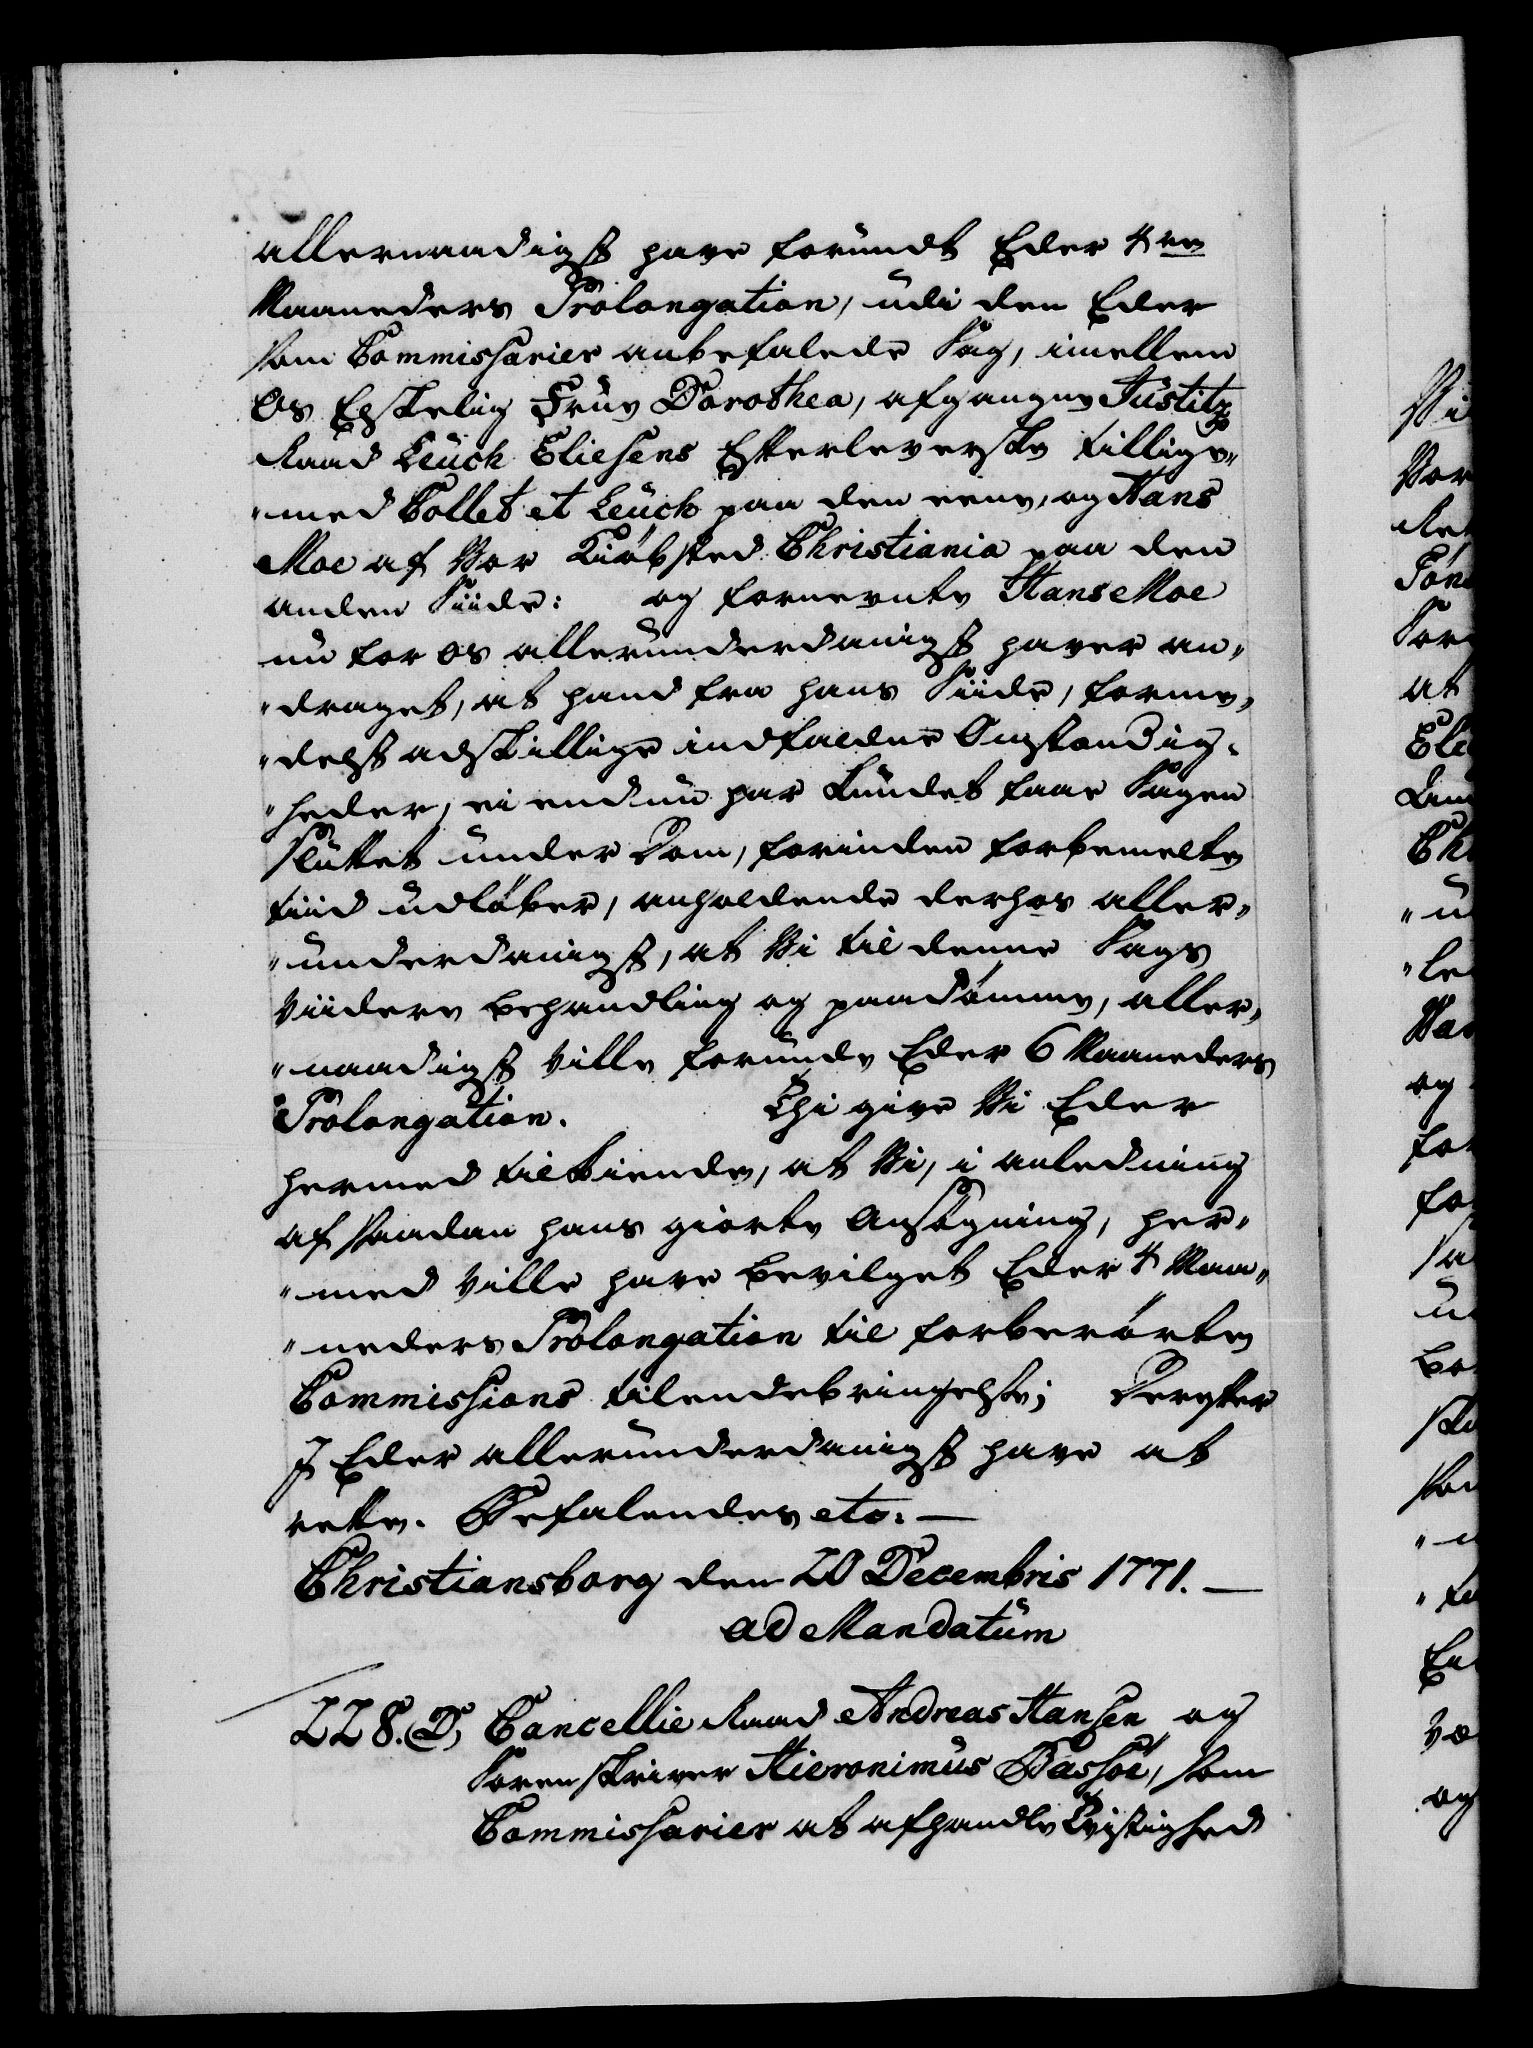 allernaadigst have forundt Eder 4re
Maaneders Prolongation, udi den Eder
som Commissarier anbefalede Sag, imellem
Os Elskelig Frue Dorothea, afgangne Justitz
Raad Leuch Eliesens Efterleverske tillige„
„med Collet et Leuch paa den eene, og Hans
Moe af Vor Kiøbsted Christiania paa den
anden Siide: og fornevnte Hans Moe
nu for os allerunderdanigst haver an„
„draget, at hand fra hans Siide, forme„
„delst adskillige indfaldne Omstændig„
„heder, ei endnu har kundet faae Sagen
sluttet under Dom, forinden forbemelte
tiid udløber, anholdende derhos aller„
„underdanigst, at Vi til denne Sags
viidere behandling og paadømme, aller„
„naadigst ville forunde Eder 6 Maaneders
Prolongation. Thi give Vi Eder
hermed tilkiende, at Vi, i anledning
af saadan hans giorte Ansøgning, her„
„med ville have bevilget Eder 4 Maa„
„neders Prolongation til forberørte
Commissions tilendebringelse; Derefter
I Eder allerunderdanigst have at
rette. Befalendes etc: —
Christiansborg den 20 Decembris 1771. —
ad Mandatum
228. D, Cancellie Raad Andreas Hansen og
Sorenskriver Hieronimus Bassøe, som
Commissarier at afhandle Tvistighed
Vi
Vor
og
at